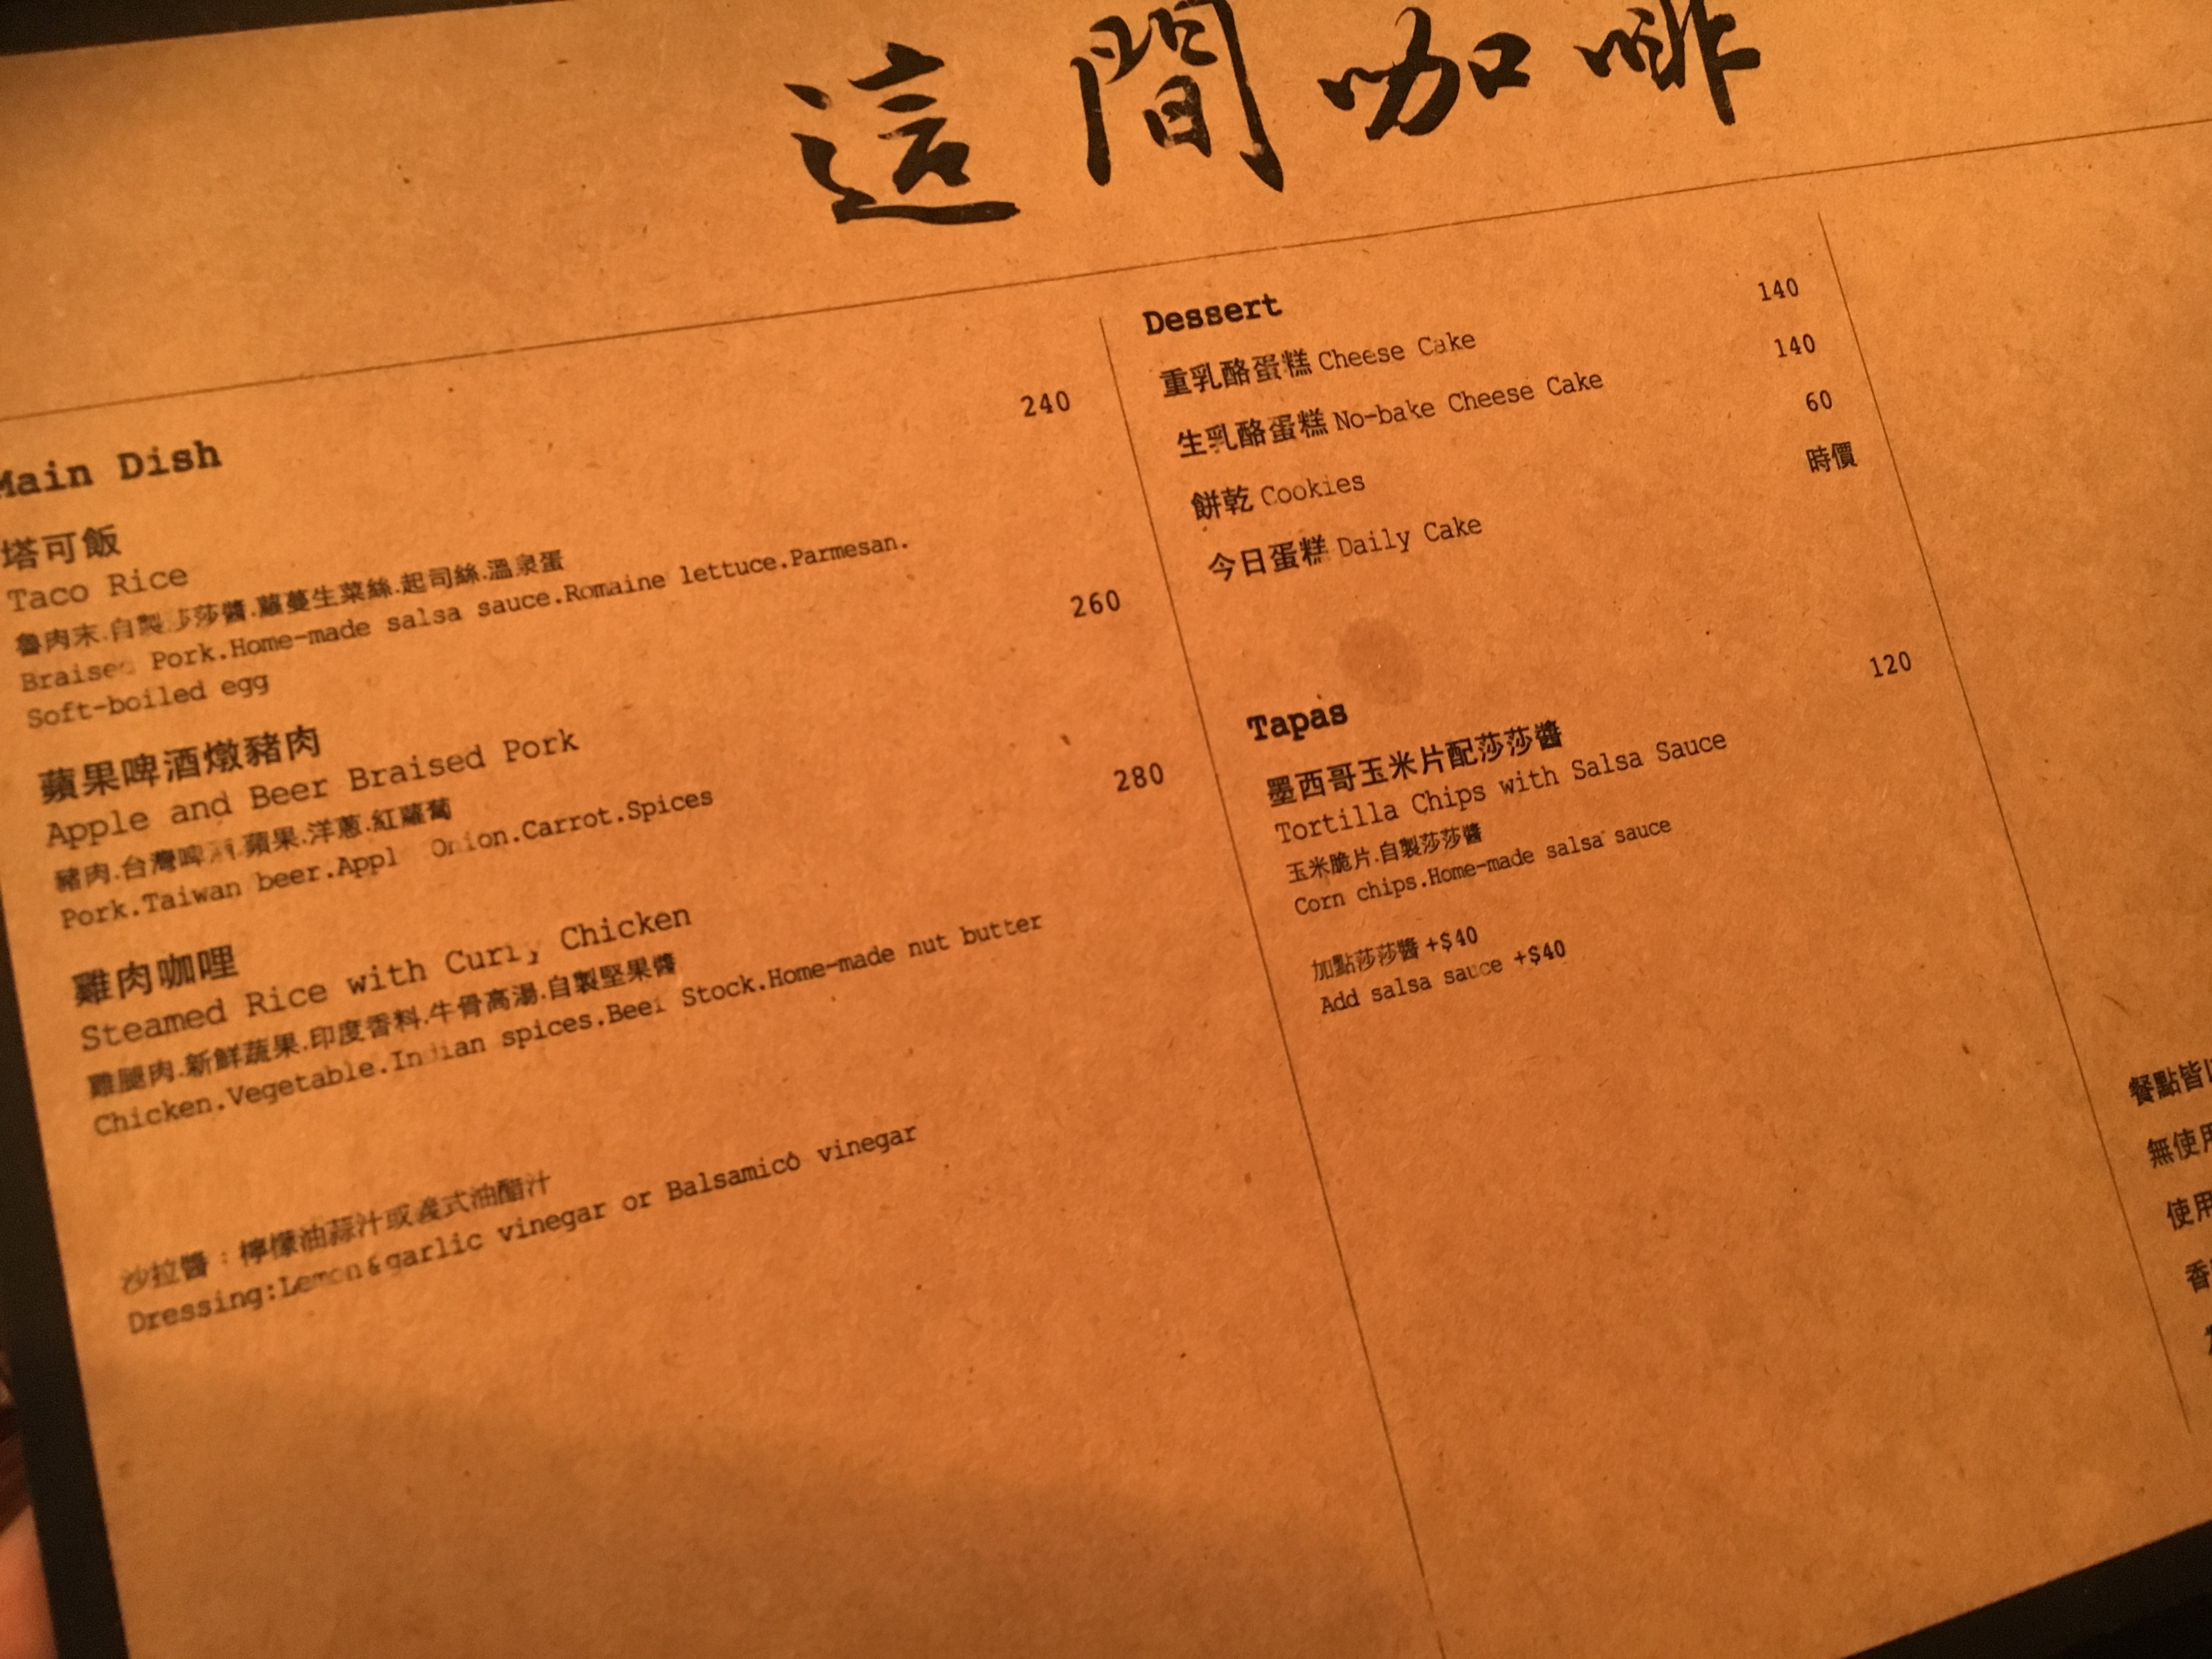 這間咖啡
Main Dish
塔可飯 240
Taco Rice
魯肉末.自製莎莎醬.蘿蔓生菜絲.起司絲.溫泉蛋
Braised Pork.Home-made salsa sauce.Romaine lettuce.Parmesan.
Soft-boiled egg
蘋果啤酒燉豬肉 260
Apple and Beer Braised Pork
豬肉.台灣啤酒.蘋果.洋蔥.紅蘿蔔
Pork.Taiwan beer.Appl Onion.Carrot.Spices
雞肉咖哩 280
Steamed Rice with Curry Chicken
雞腿肉.新鮮蔬果.印度香料.牛骨高湯.自製堅果醬
Chicken.Vegetable.Indian spices.Beef Stock.Home-made nut butter
沙拉醬：檸檬油蒜汁或義式油醋汁
Dressing:Lemon&garlic vinegar or Balsamico vinegar
Dessert
重乳酪蛋糕 Cheese Cake 140
生乳酪蛋糕 No-bake Cheese Cake 140
餅乾 Cookies 60
今日蛋糕 Daily Cake 時價
Tapas
墨西哥玉米片配莎莎醬 120
Tortilla Chips with Salsa Sauce
玉米脆片.自製莎莎醬
Corn chips.Home-made salsa sauce
加點莎莎醬 +$40
Add salsa sauce +$40
餐點皆
無使用
使用
香